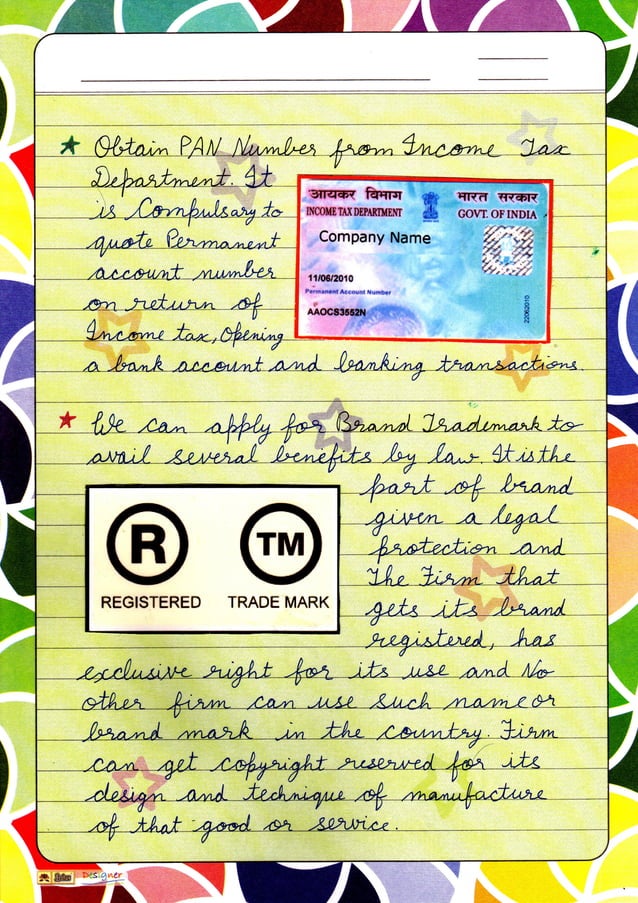 ★ Obtain PAN Number from Income Tax
Department. It
is Compulsary to
quote Permanent
account number
on return of
Income tax, Opening
a bank account and banking transactions.
आयकर विभाग
INCOME TAX DEPARTMENT
भारत सरकार
GOVT. OF INDIA
Company Name
11/06/2010
Permanent Account Number
AAOCS3552N
22062010
★ We can apply for Brand Trademark to
avail several benefits by law. It is the
part of brand
given a legal
protection and
The Firm that
gets its brand
registered, has
exclusive right for its use and No
other firm can use such name or
brand mark in the country. Firm
can get copyright reserved for its
design and technique of manufacture
of that good or service.
R
REGISTERED
TM
TRADE MARK
Designer